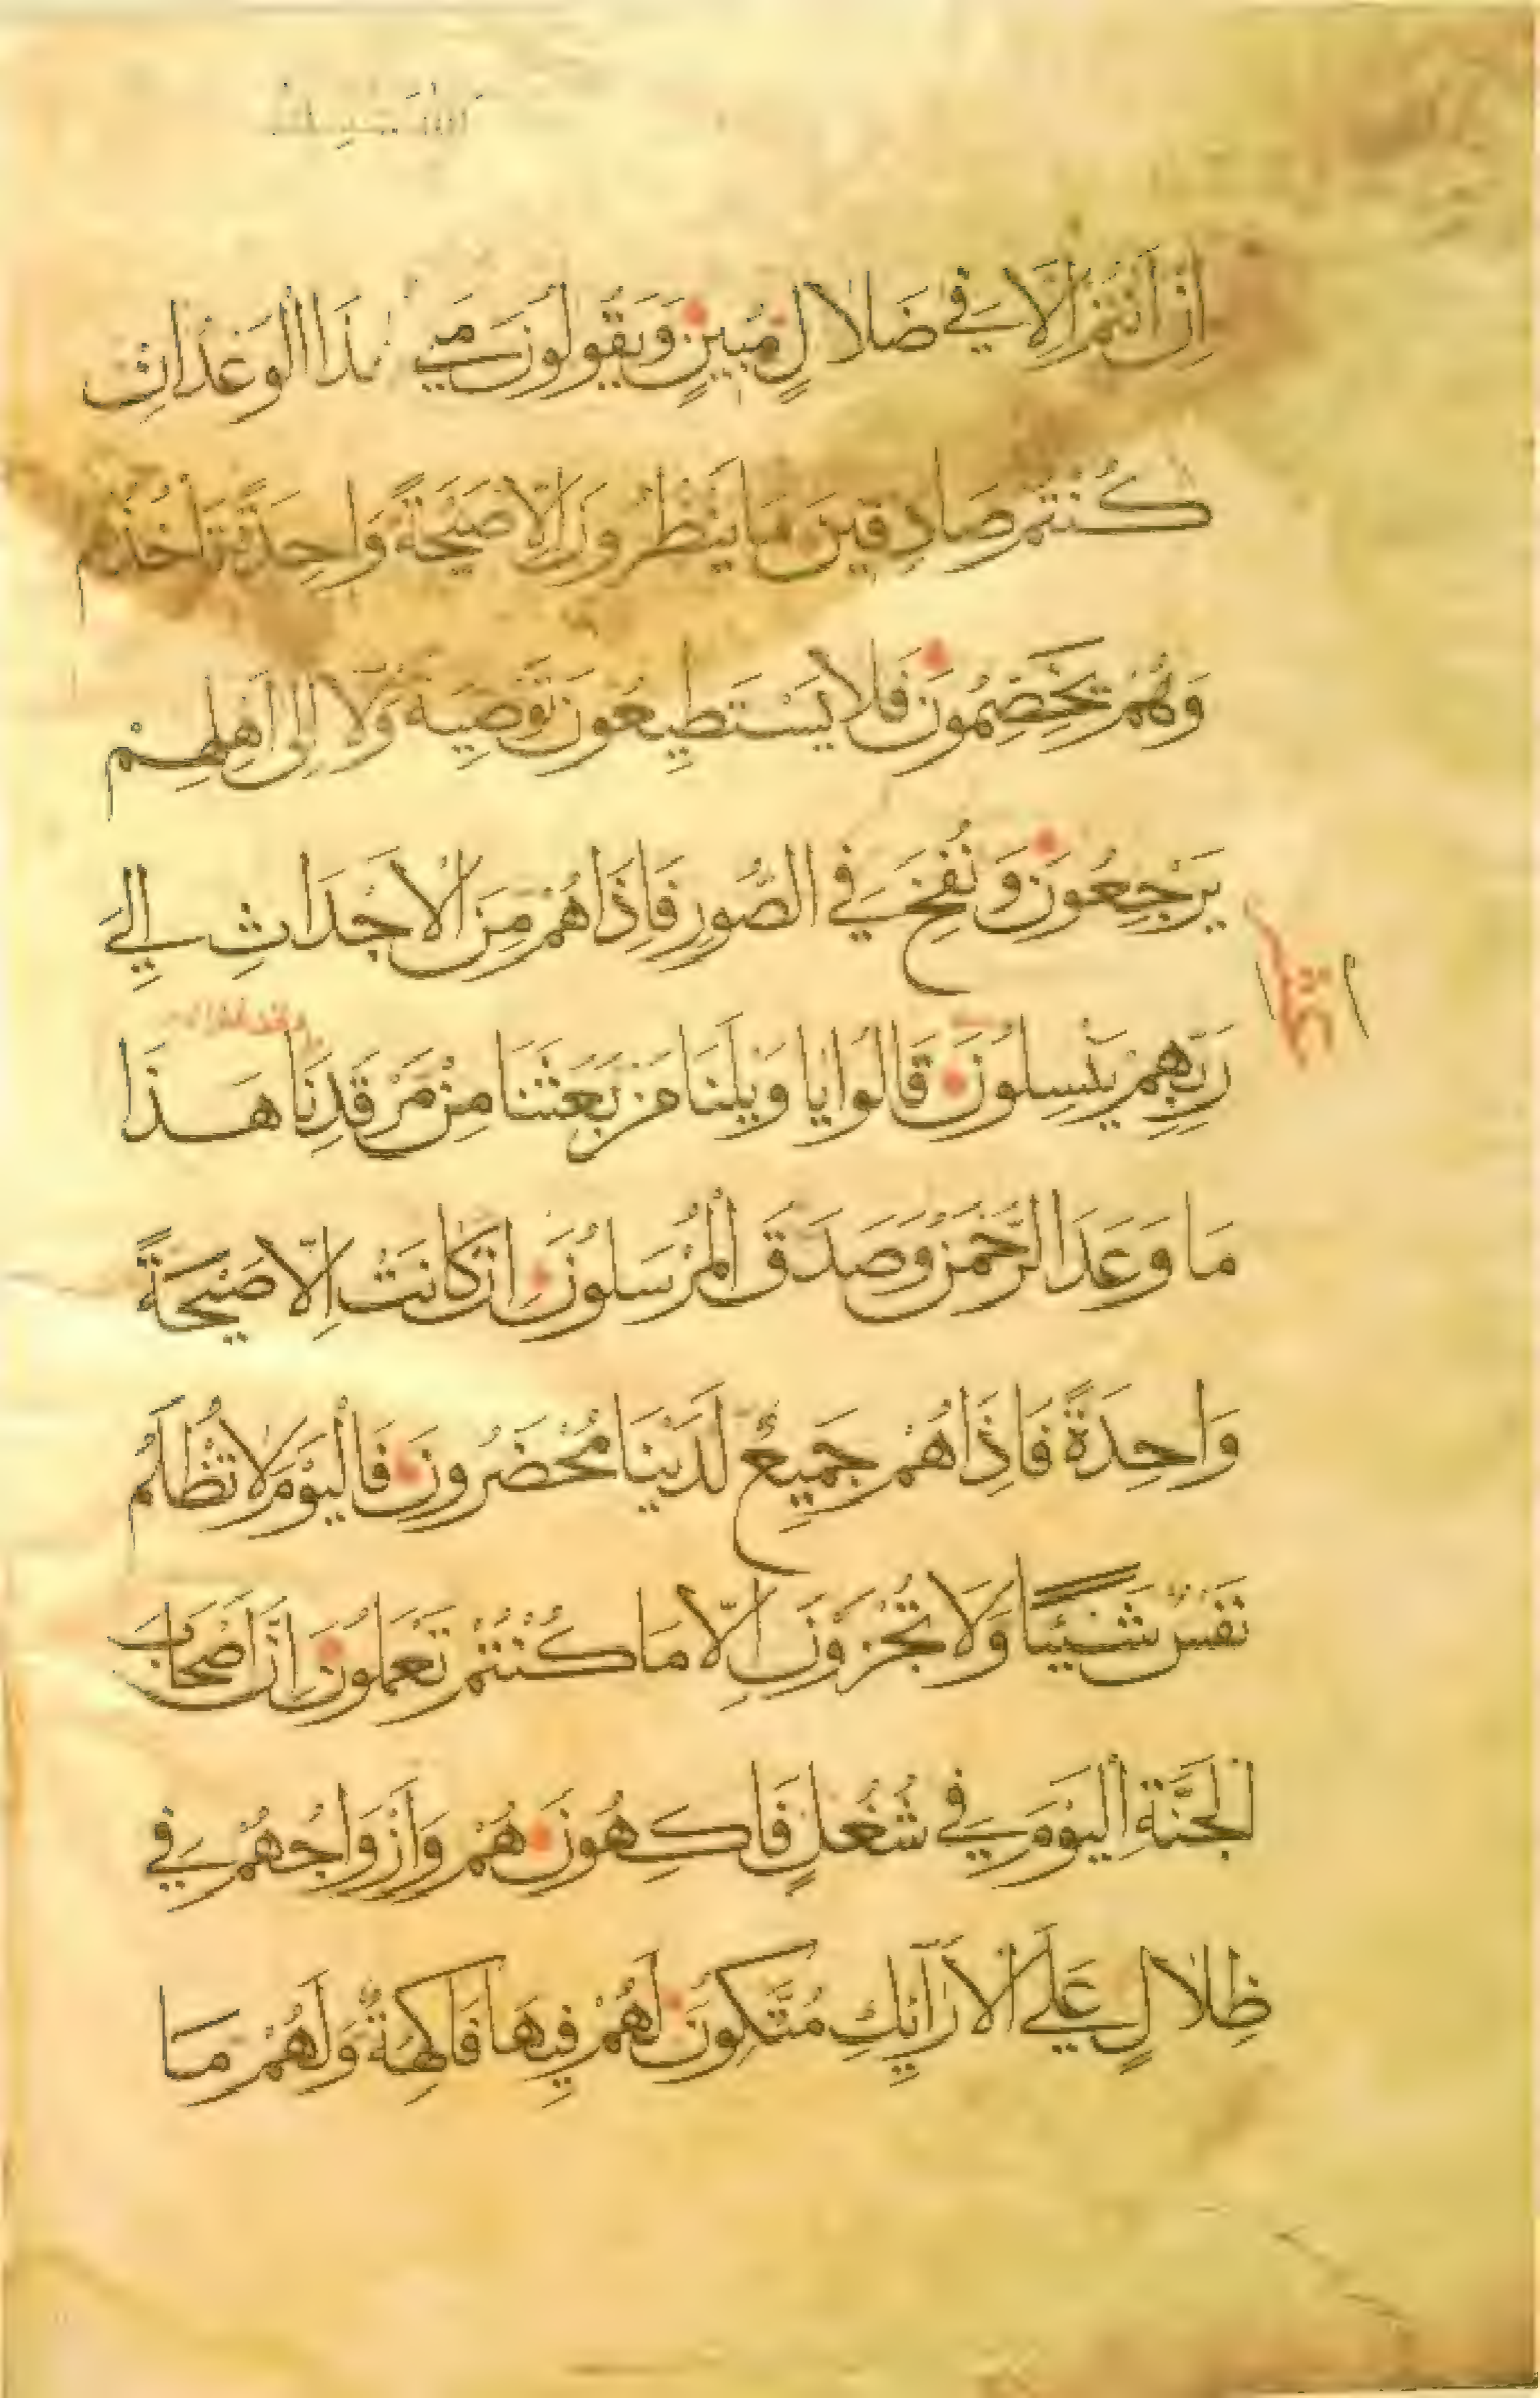 اِنْ اَنْتُمْ اِلَّا فِي ضَلَالٍ مُبِينٍ وَيَقُولُونَ مَتَى هَذَا الْوَعْدُ اِنْ
كُنْتُمْ صَادِقِينَ مَا يَنْظُرُونَ اِلَّا صَيْحَةً وَاحِدَةً تَأْخُذُهُمْ
وَهُمْ يَخِصِّمُونَ فَلَا يَسْتَطِيعُونَ تَوْصِيَةً وَلَا اِلَى اَهْلِهِمْ
يَرْجِعُونَ وَنُفِخَ فِي الصُّورِ فَاِذَا هُمْ مِنَ الْاَجْدَاثِ اِلَى
رَبِّهِمْ يَنْسِلُونَ قَالُوا يَا وَيْلَنَا مَنْ بَعَثَنَا مِنْ مَرْقَدِنَا هَذَا
مَا وَعَدَ الرَّحْمَنُ وَصَدَقَ الْمُرْسَلُونَ اِنْ كَانَتْ اِلَّا صَيْحَةً
وَاحِدَةً فَاِذَا هُمْ جَمِيعٌ لَدَيْنَا مُحْضَرُونَ فَالْيَوْمَ لَا تُظْلَمُ
نَفْسٌ شَيْئًا وَلَا تُجْزَوْنَ اِلَّا مَا كُنْتُمْ تَعْمَلُونَ اِنَّ اَصْحَابَ
الْجَنَّةِ الْيَوْمَ فِي شُغُلٍ فَاكِهُونَ هُمْ وَاَزْوَاجُهُمْ فِي
ظِلَالٍ عَلَى الْاَرَائِكِ مُتَّكِئُونَ لَهُمْ فِيهَا فَاكِهَةٌ وَلَهُمْ مَا